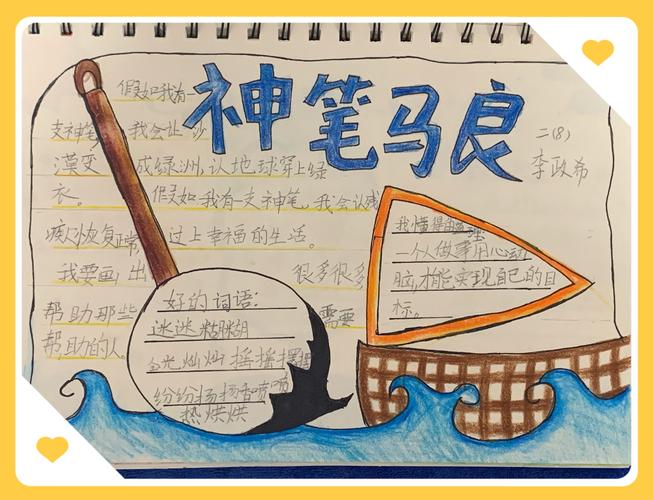 神笔马良
二(8)
李政希
假如我有一
支神笔，我会让沙
漠变成绿洲,认地球穿上绿
衣。假如我有一支神笔,我会认残
疾人恢复正常,过上幸福的生活。
我要画出很多很多
帮助那些需要
帮助的人。
好的词语:
迷迷糊糊
金光灿灿 摇摇摆摆
纷纷扬扬 香喷喷
热烘烘
我懂得的道理:
一个人做事用心动
脑,才能实现自己的目
标。